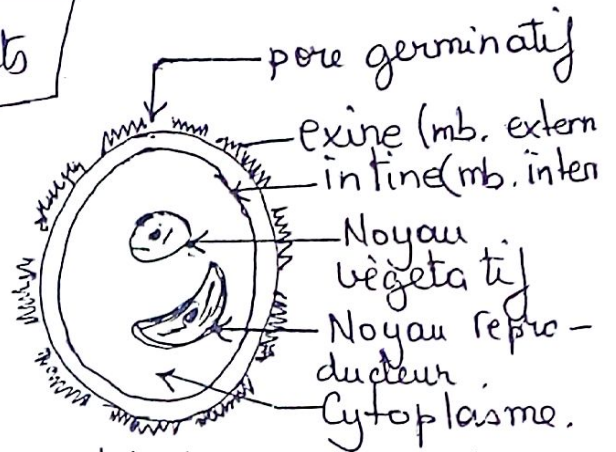 ts
pore germinatif
exine (mb. extern
intine (mb. inter
Noyau
végétatif
Noyau repro-
ducteur.
Cytoplasme.